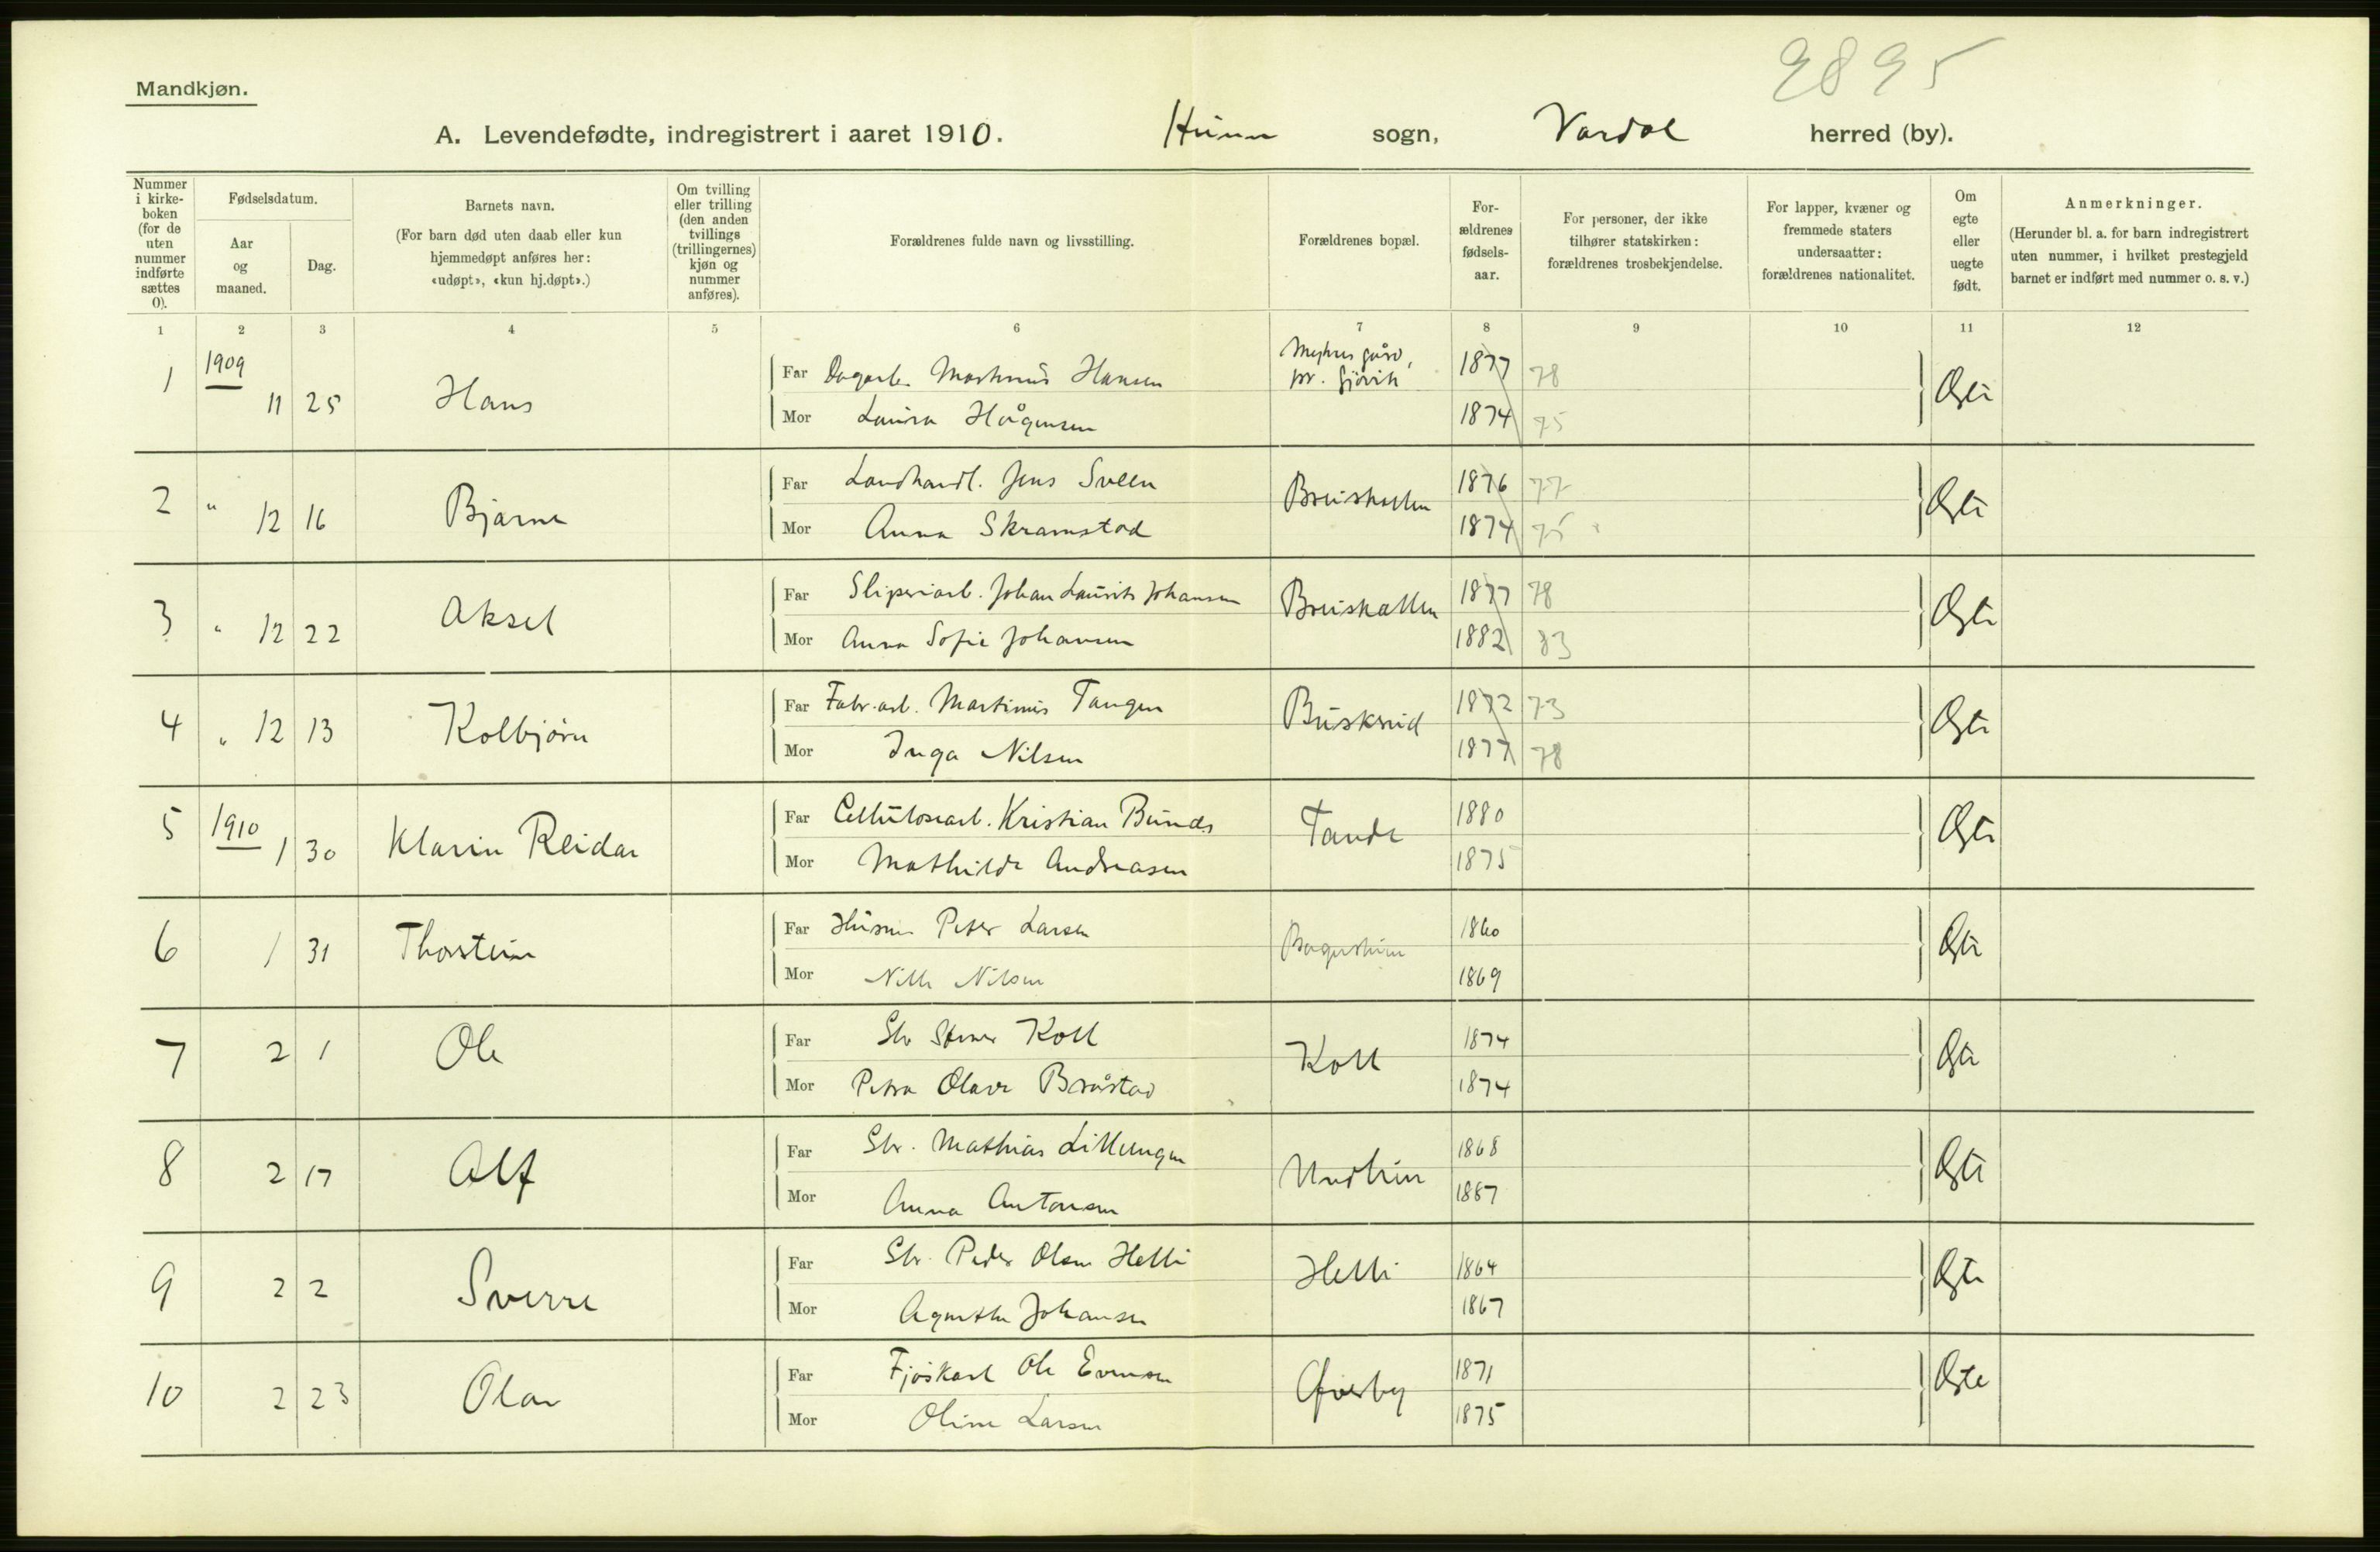 9895
Mandkjøn.
A. Levendefødte, indregistrert i aaret 1910. Hunn sogn, Vardal herred (by).
Nummer i kirkeboken (for de uten nummer indførte sættes 0).
Fødselsdatum.
Aar og maaned.
Dag.
Barnets navn.
(For barn død uten daab eller kun hjemmedøpt anføres her: «udøpt», «kun hj.døpt».)
Om tvilling eller trilling (den anden tvillings (trillingernes) kjøn og nummer anføres).
Forældrenes fulde navn og livsstilling.
Forældrenes bopæl.
Forældrenes fødselsaar.
For personer, der ikke tilhører statskirken: forældrenes trosbekjendelse.
For lapper, kvæner og fremmede staters undersaatter: forældrenes nationalitet.
Om egte eller uegte født.
Anmerkninger.
(Herunder bl. a. for barn indregistrert uten nummer, i hvilket prestegjeld barnet er indført med nummer o. s. v.)
1 2 3 4 5 6 7 8 9 10 11 12
1 1909 11 25 Hans Far Dagarb. Martinus Hansen pr. Gjøvik 1877 78 Ægte
Mor Laura Hågensen 1874 75
2 " 12 16 Bjarne Far Landhandl. Jens Sveen Breiskallen 1876 77 Ægte
Mor Anna Skramstad 1874 75
3 " 12 22 Aksel Far Sliperiarb. Johan Laurits Johansen Breiskallen 1877 78 Ægte
Mor Anna Sofie Johansen 1882 83
4 " 12 13 Kolbjørn Far Fabr.arb. Martinus Tangen Buskrud 1872 73 Ægte
Mor Inga Nilsen 1877 78
5 1910 1 30 Klarin Reidar Far Cellulosearb. Kristian Bunds Tande 1880 Ægte
Mor Mathilde Andreasen 1875
6 1 31 Thorstein Far Husm. Peter Larsen 1860 Ægte
Mor Nille Nilsen 1869
7 2 1 Ole Far Sbr Koll Koll 1874 Ægte
Mor Petra Olave Bråstad 1874
8 2 17 Alf Far Sbr. Mathias Lilleengen 1868 Ægte
Mor Anna Antonsen 1867
9 2 2 Sverre Far Sbr. Peder Olsen Helli Helli 1864 Ægte
Mor Agnethe Johansen 1867
10 2 23 Olav Far Fjøskarl Ole Evensen Øverby 1871 Ægte
Mor Oline Larsen 1875